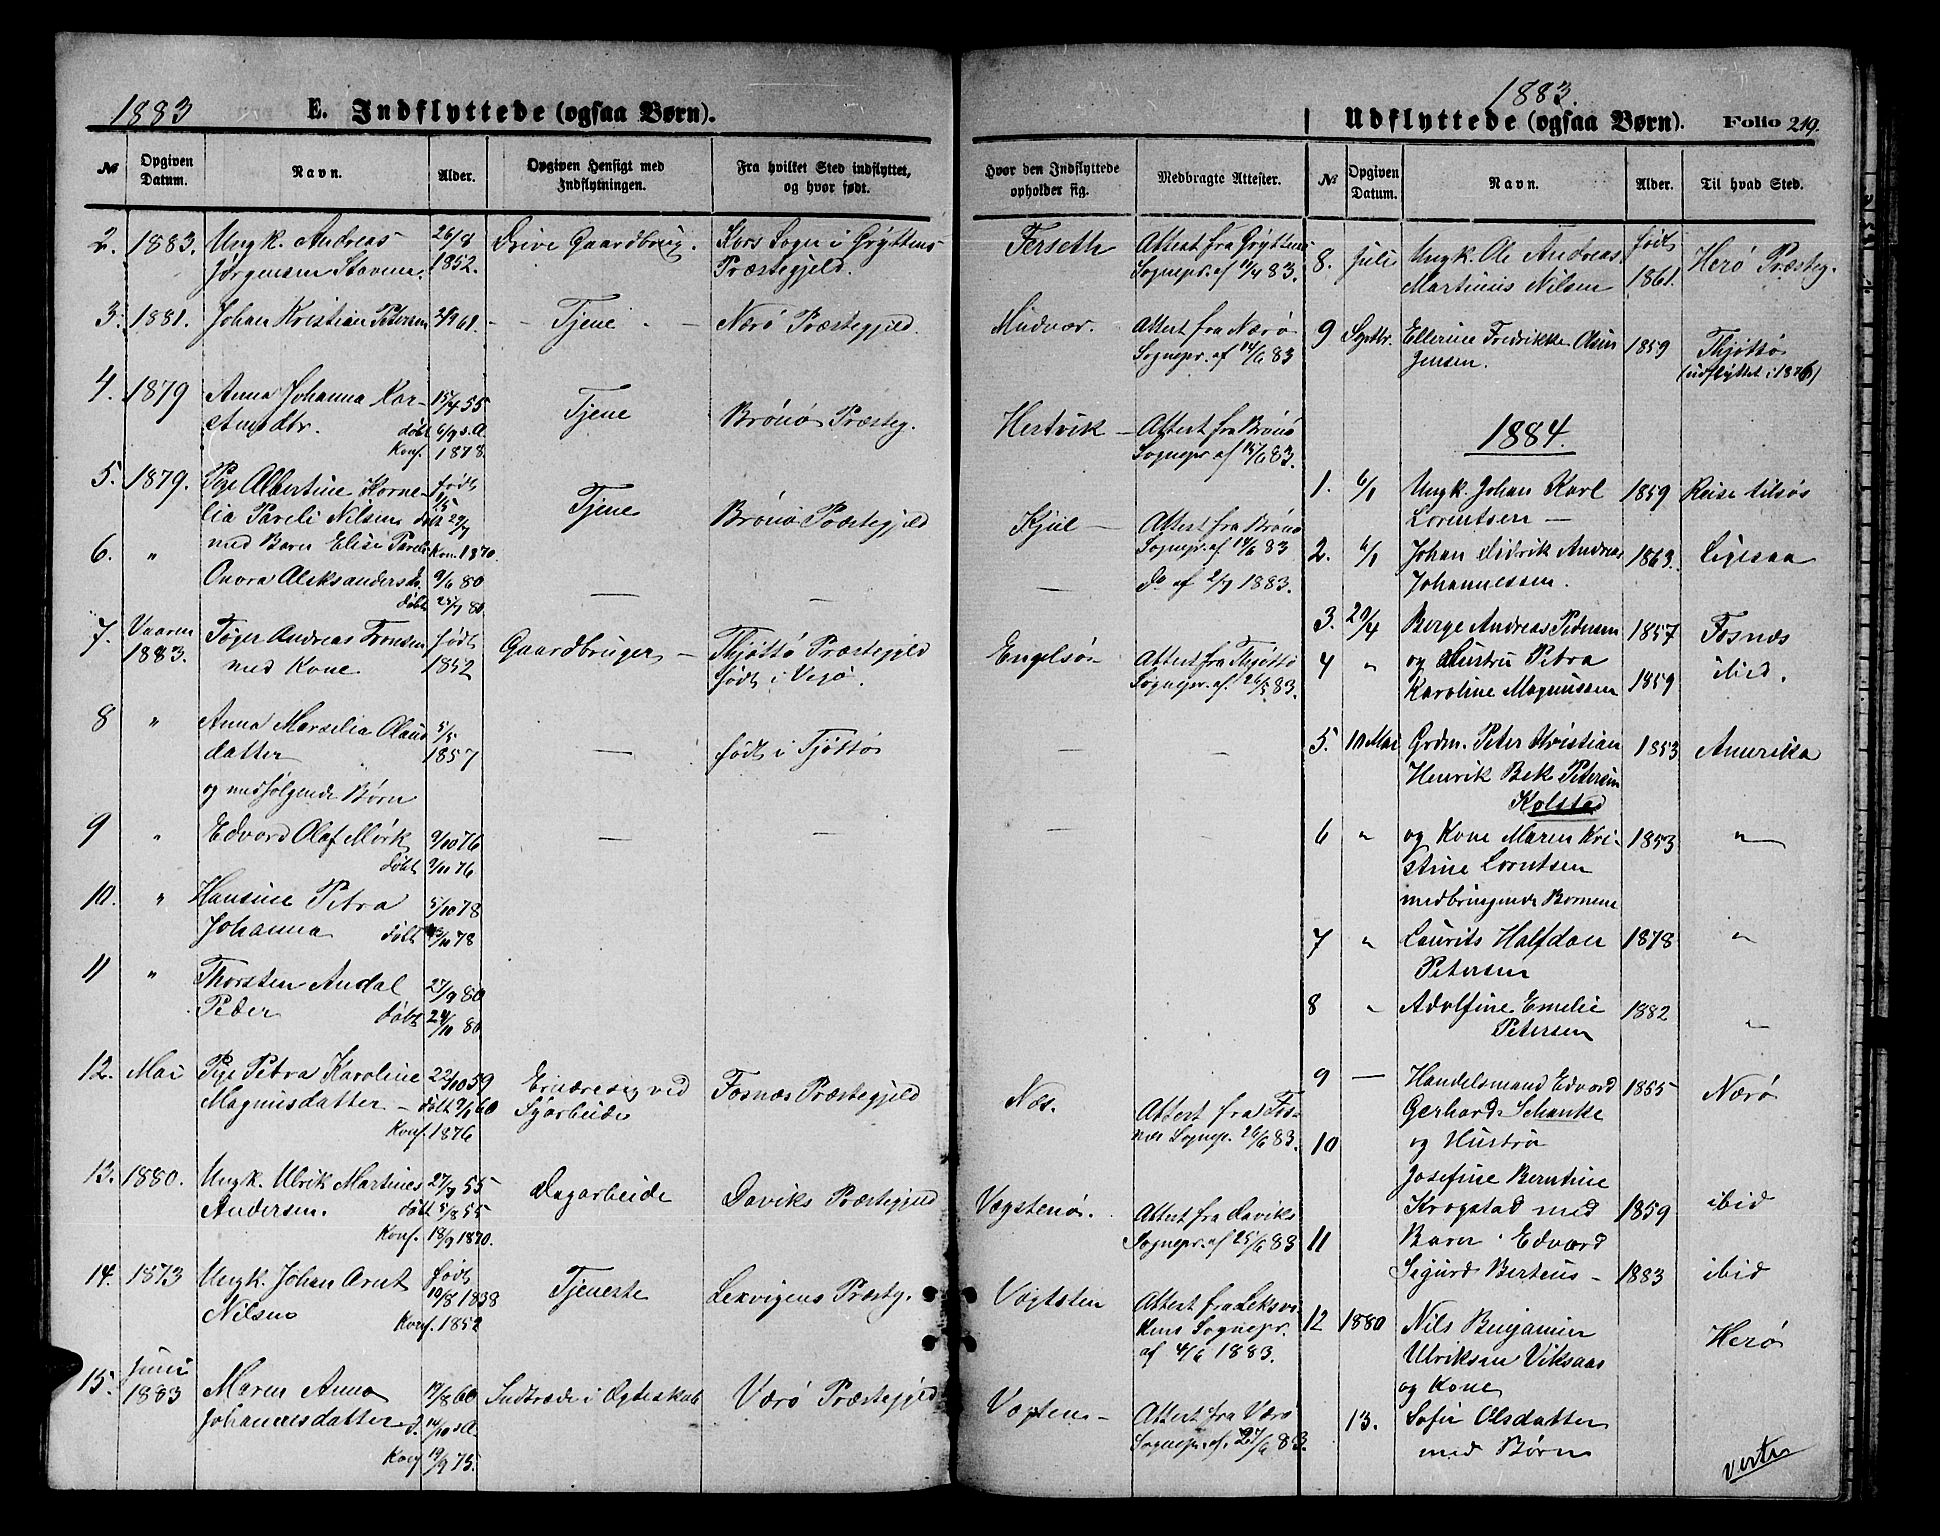 1883
E. Indflyttede (ogsaa Børn).
№
Opgiven Datum.
Navn.
Alder.
Opgiven Hensigt med Indflytningen.
Fra hvilket Sted indflyttet, og hvor født.
Hvor den Indflyttede opholder sig.
Medbragte Attester.
2. 1883. Ungk. Andreas 26/8 Drive Gaardbrug. Kors Sogn i Gryttens Ferseth Attest fra Gryttens
Jørgensen 1852. Præstegjeld. Sognepr. af 11/4 83.
3. 1881. Johan Kristian Petersen 2/9 61. Tjene Nærø Præstegjeld. Mudvær. Attest fra Nærø
Sognepr. af 14/6 83
4. 1879 Anna Johanna Kar- 15/4 55 Tjene Brønø Præsteg. Hertvik Attest fra Brønø
døbt 6/9 s.A. Sognepr af 15/6 83.
Konf. 1878.
5. 1879. Pige Albertine Korne- født Tjene Brønø Præstegjeld Kjul Attest fra Brønø
lia Pareli Nilsen Sognepr. af 14/6 83
6. " med Barn Elise Pareli Kon. 1870. Do af 2/7 1883.
Onora Aleksandersd. 9/6 80
døbt 25/7 80.
7. Vaaren Tøger Andreas Tronsen født Gaardbruger Thjøttø Præstegjeld Engelsø Attest fra Thjøttø
1883. med Kone 1852 født i Vejø. Sognepr. af. 26/5 83.
8 " Anna Marselia Olaus 5/5
datter 1857 født i Tjøttø
og medfølgende Børn
9 " Edvard Olaf Mørk 9/10 76
døbt 9/11 76
10. " Hansine Petra 5/10 78
Johanna døbt 13/10 78
11 " Thorsten Andal 27/9 80
Peder døbt 24/10 80.
12. Mai Pige Petra Karoline 22/10 59 Ernære sig ved Fosnæs Præstegjeld Næs. Attest fra Fos-
Magnusdatter døbt 9/1 60 Syarbeide næs Sognepr. 26/6 83.
Konf. 1876
13. 1880. Ungk. Ulrik Martines 27/7 55 Dagarbeide Daviks Præstegjeld Vægstenø. Attest fra Daviks
Andersen. døbt 5/8 55 Sognepr. af 25/6 83
Konf. 18/9 1870.
14. 1873 Ungk. Johan Arnt født Tjeneste Lexvigens Præsteg. Vogtsten Attest fra Leksvi-
Nilsen 19/8 1838 kens Sognepr.
Konf. 1852 af 4/6 1883.
15. Juni
1883 Maren Anna 17/8 60 Indtræde i Ægteskab Værø Præstegjeld Vogtens Attest fra Værø
Johannesdatter d. 14/10 s.A. Sognepr. af. 27/6 83.
Konf 19/9 75.
1883.
Udflyttede (ogsaa Børn).
Folio 219.
№
Opgiven Datum.
Navn.
Alder.
Til hvad Sted.
8. Juli Ungk. Ole Andreas født Herø Præsteg.
Martinus Nilsen 1861.
9 Septbr. Ellerine Fredrikke Olsen 1859 Thjøttø
Jensen. (udflyttet i 1876)
1884.
1. 6/1 Ungk. Johan Karl 1859 Reise tilsøs
Lorentsen
2. 6/1 Johan Didrik Andreas 1863. Ligesaa
Johannessen.
3. 29/4 Berge Andreas Petersen 1857 Fosnæs
4 " og Hustru Petra
Karoline Magnussen 1859 ibid.
5. 10 Mai Grdm. Peter Kristian 1853 Amerika
Henrik Bek Petersen
Kolstad
6 " og Kone Maren Kri- 1853 "
stine Lorentsen
medbringende Børnene
7 " Laurits Halfdan 1878 "
Petersen
8 " Adolfine Emelie 1882 "
Petersen
9 — Handelsmand Edvard 1855 Nærø
Gerhard Schanke
10 og Hustru
Josefine Berntine
Krogstad med 1859 ibid
11 Barn Edvard
Sigurd Berteus 1883 ibid
12 1880 Nils Benjamin
Ulriksen Viksaas Herø
og Kone
13. Sofie Olsdatter
med Børn
verte